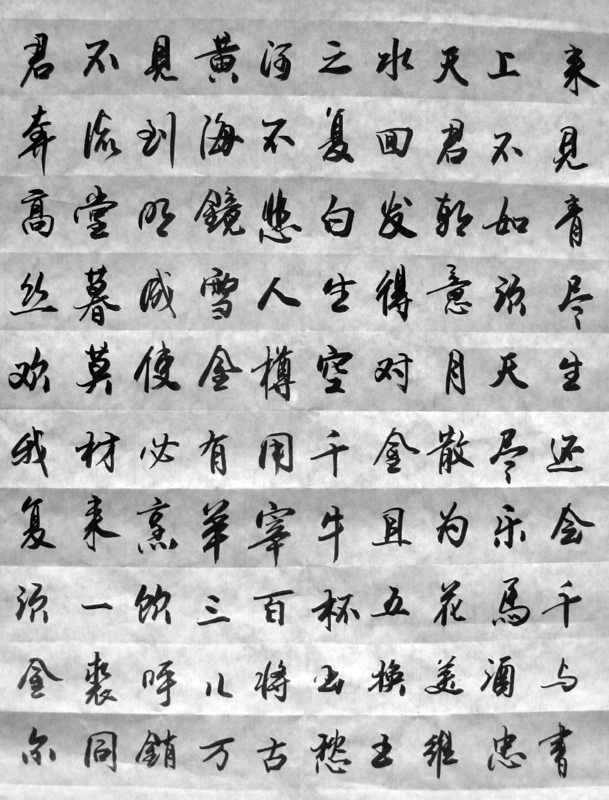 君不見黄河之水天上来
奔流到海不复回君不見
高堂明鏡悲白发朝如青
丝暮成雪人生得意须尽
欢莫使金樽空对月天生
我材必有用千金散尽还
复来烹羊宰牛且为乐会
须一饮三百杯五花馬千
金裘呼儿将出换美酒与
尔同銷万古愁王维忠書